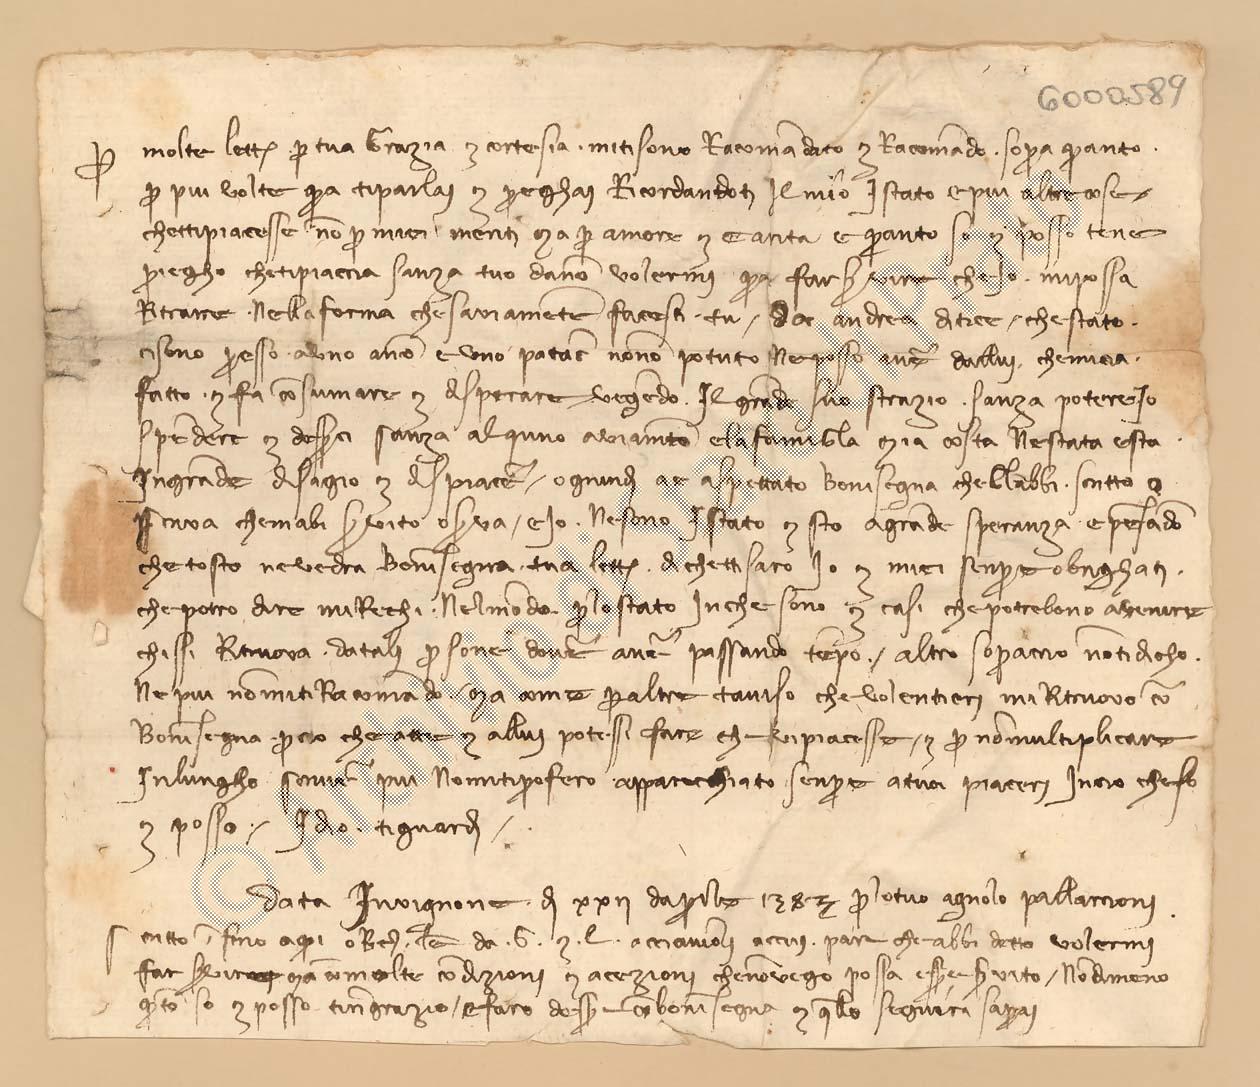 6000589
Per molte lettere per tua Grazia e cortesia mitisono Racomandato e Racomando sopra quanto
per piu volte qua tiparlai e preghai Ricordandoti Il mio Istato e piu altre cose
chettipiacesse non per miei meriti ma per amore e carita e quanto so e posso tene
priegho chetipiaccia sanza tuo danno volermi qua far servire che Io mipossa
Ritrare Nella forma chesaviamente facesti tu da andrea ditice chestato
cisono presso aduno anno e uno patac nonno potuto Neposso avere dallui chemica
fatto e fa consumare e disperare vegiendo Il grande suo strazio sanza potere Io
spendere e desserci sanza alquno aviamento elafamiglla mia costa Nestata esta
Ingrande disagio e dispiacere ognindi ae aspettato Bonisegna chellabbi scritto o
scriva chemabi servito o serva e Io Nesono Istato e sto agrande speranza e pensando
che tosto nevedra Bonisegna tua lettera dichettisaro Io e miei senpre obrighati
chepotro dire miRechi Nelmondo per lostato Inche sono e casi chepotrebono avenire
chissi Ritruova datali persone dovere avere passando tenpo altro sopraccio nontidicho
Ne piu nonmitiRacomando ma come per altre taviso che volentieri miRitruovo con
Bonisegna per cio che atte e allui potessi fare che vipiacesse e per nonmultiplicare
Inlungho scrivere piu Nomitiprofero apparecchiato senpre atuoi piaceri Incio che so
e posso Idio tiguardi
Data Invignone di xxii daprile 1383 per lotuo agnolo pallarcioni
scritto fino aqui o lettera da G. e L. acciaiuoli accui pare cheabbi detto volermi
far servire ma con molte condizioni e acezioni chenonvego possa essere servito Nondimeno
quanto so e posso tiringrazio e faro dessere con bonisegna e quello seguira saprai